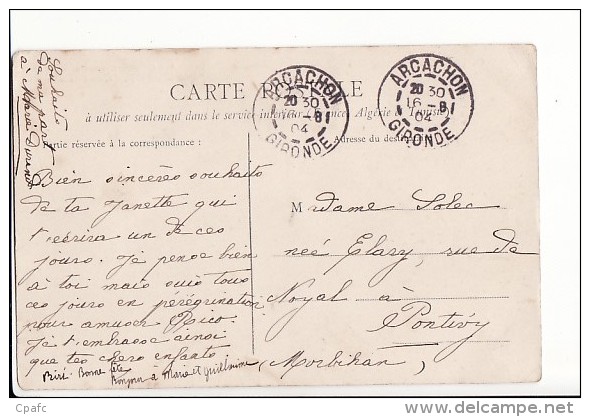 CARTE POSTALE
à utiliser seulement dans le service intérieur (France, Algérie & Tunisie)
Partie réservée à la correspondance :
Adresse du destinataire
ARCACHON
20 30
16 - 8
04
GIRONDE
ARCACHON
20 30
16 - 8
04
GIRONDE
Souhaite
de ma part
à Marie
Bien sincères souhaits
de ta Janette qui
t'écrira un de ces
jours. Je pense bien
à toi mais suis tous
ces jours en pérégrination
pour amuser Rico.
Je t'embrasse ainsi
que tes chers enfants
Bonne fête
Bonjour à Marie et Guillaume
Madame Solec
née Elary, rue de
Noyal à
Pontivy
(Morbihan)
Cpafc
delcampe.net